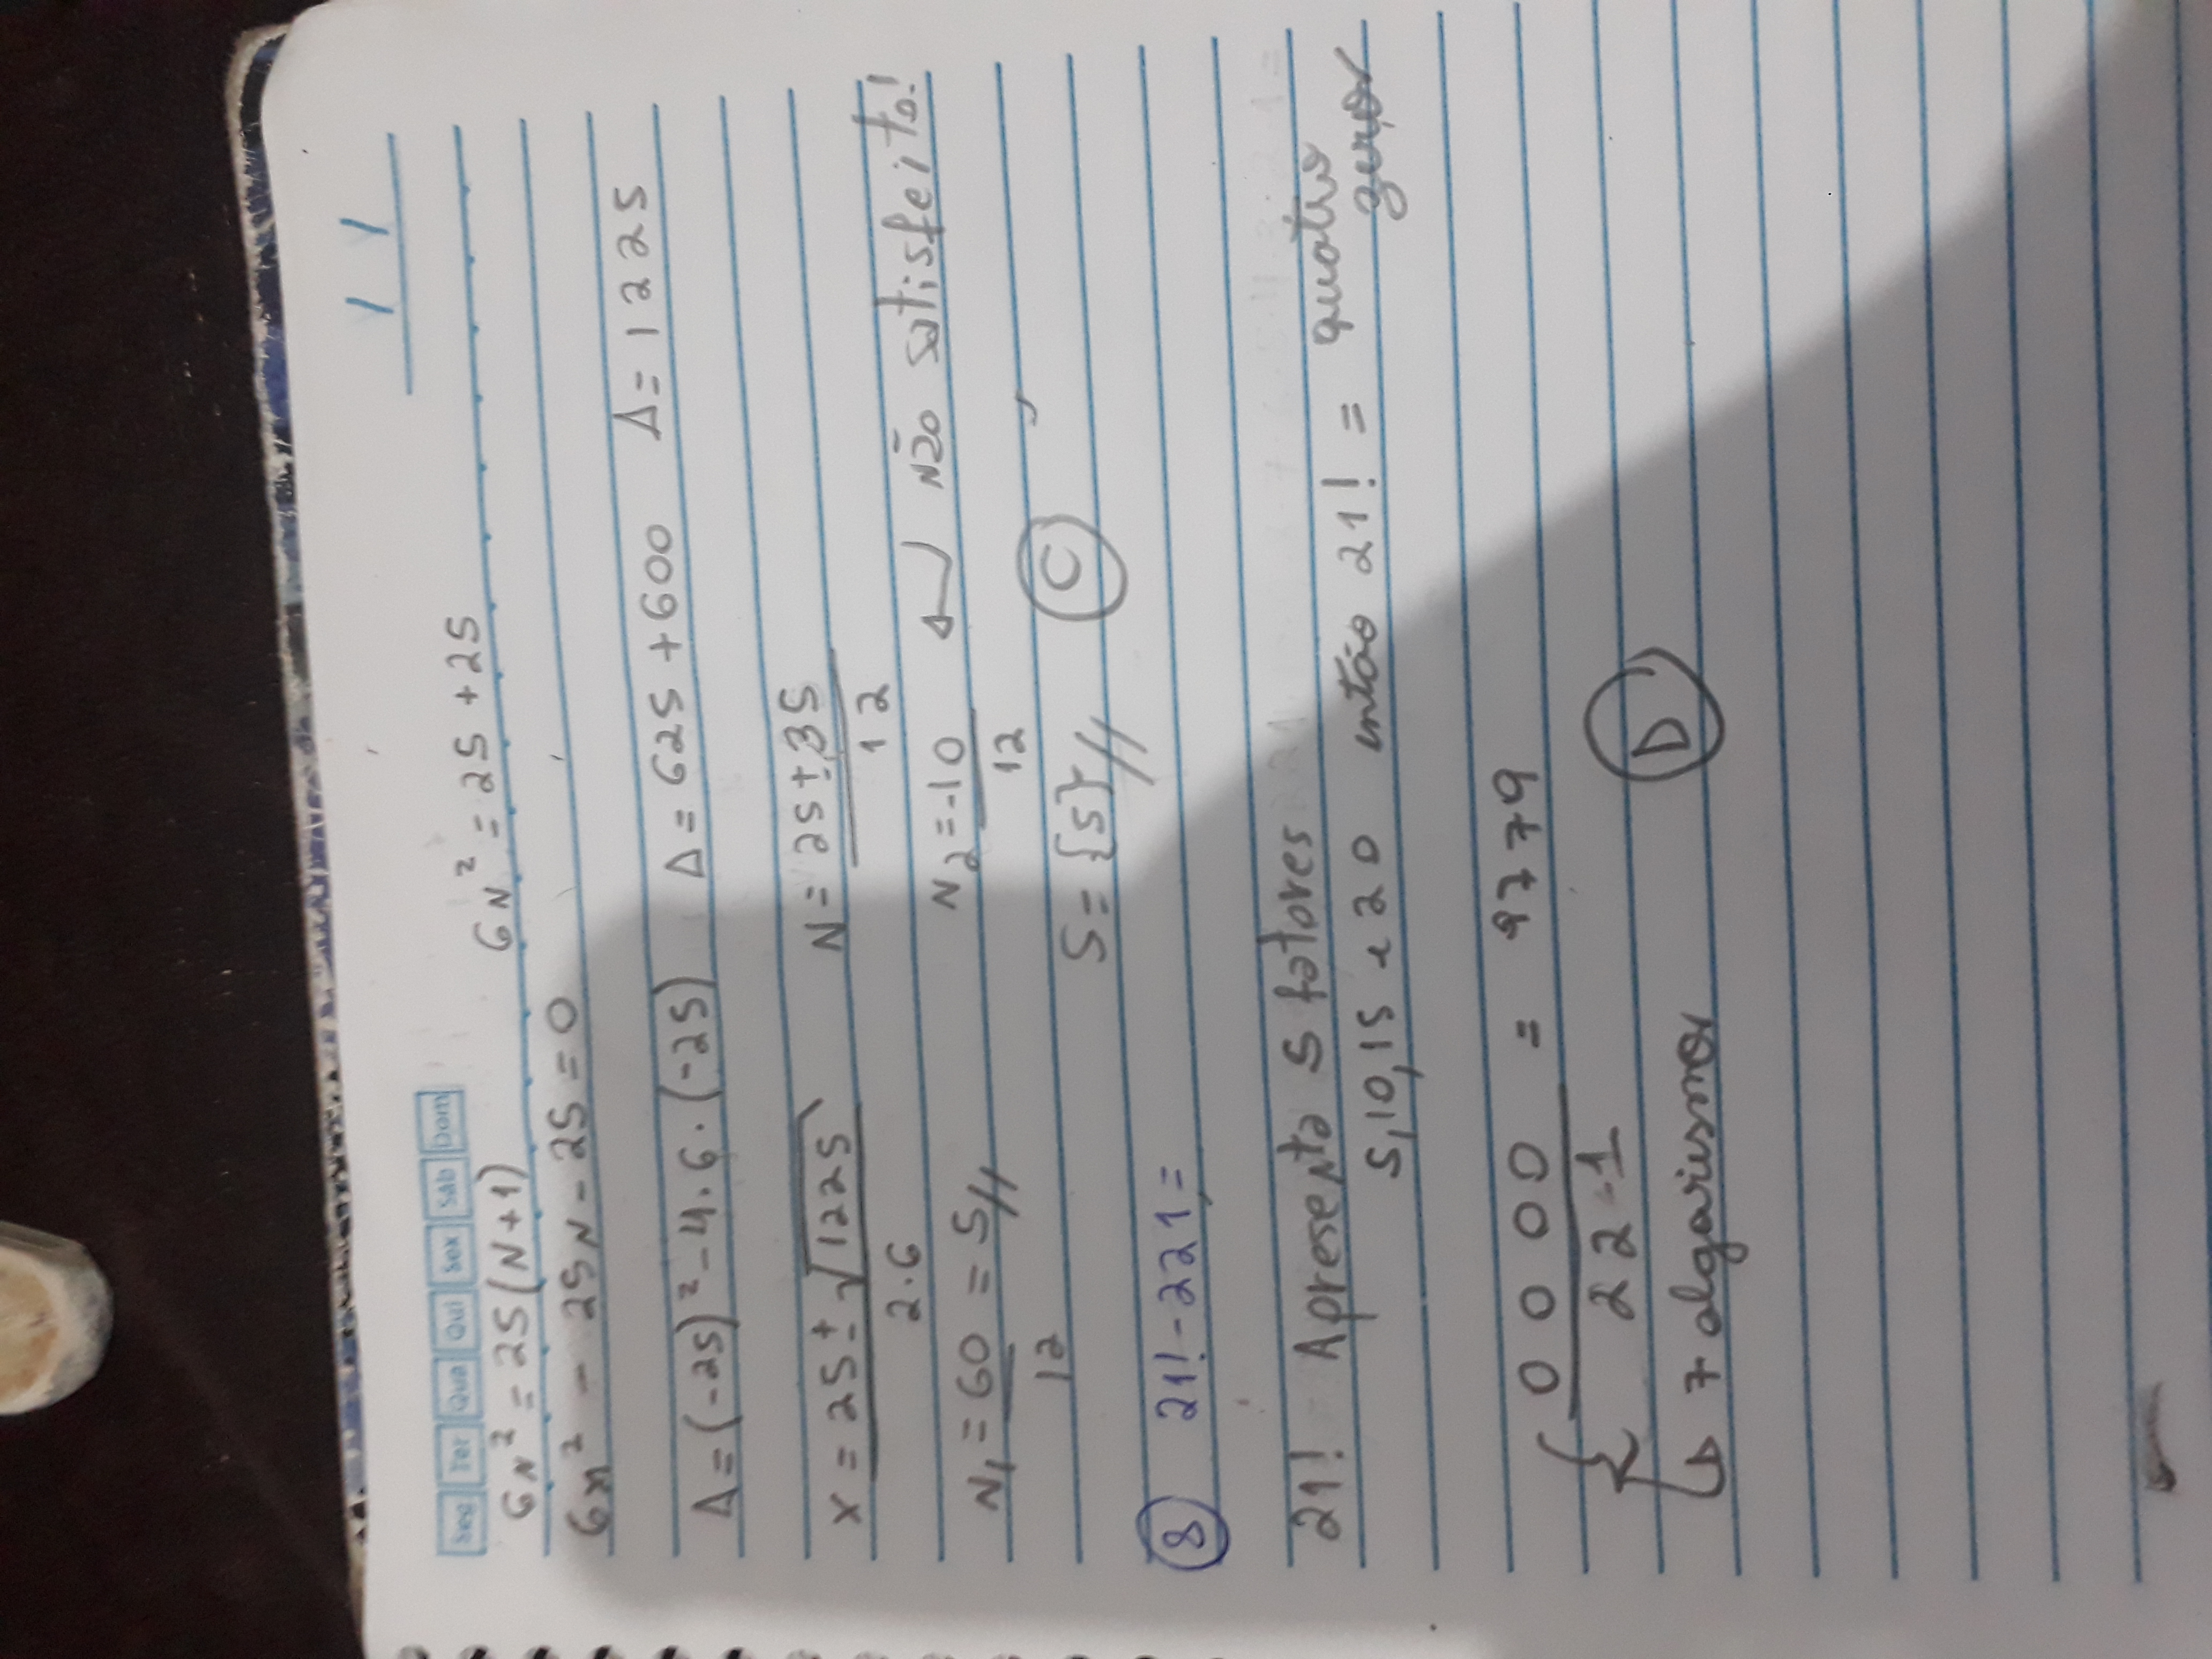 Seg Ter Qua Qui Sex Sáb Dom
6N² = 25(N+1) 6N² = 25 + 25
6n² - 25N - 25 = 0
Δ = (-25)² - 4.6.(-25) Δ = 625 + 600 Δ = 1225
x = 25 ± √1225 N = 25 ± 35
2.6 12
N₁ = 60 = 5// N₂ = -10 não satisfeita!
12 12
S = {5}// C
8 21! - 221 =
21! Apresenta 5 fatores
5, 10, 15 e 20 então 21! = quatro zeros
0 0 0 0 = 9779
2 2 1
7 algarismos D